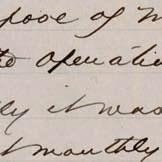 pose of
to operatio
ly it was
t monthly